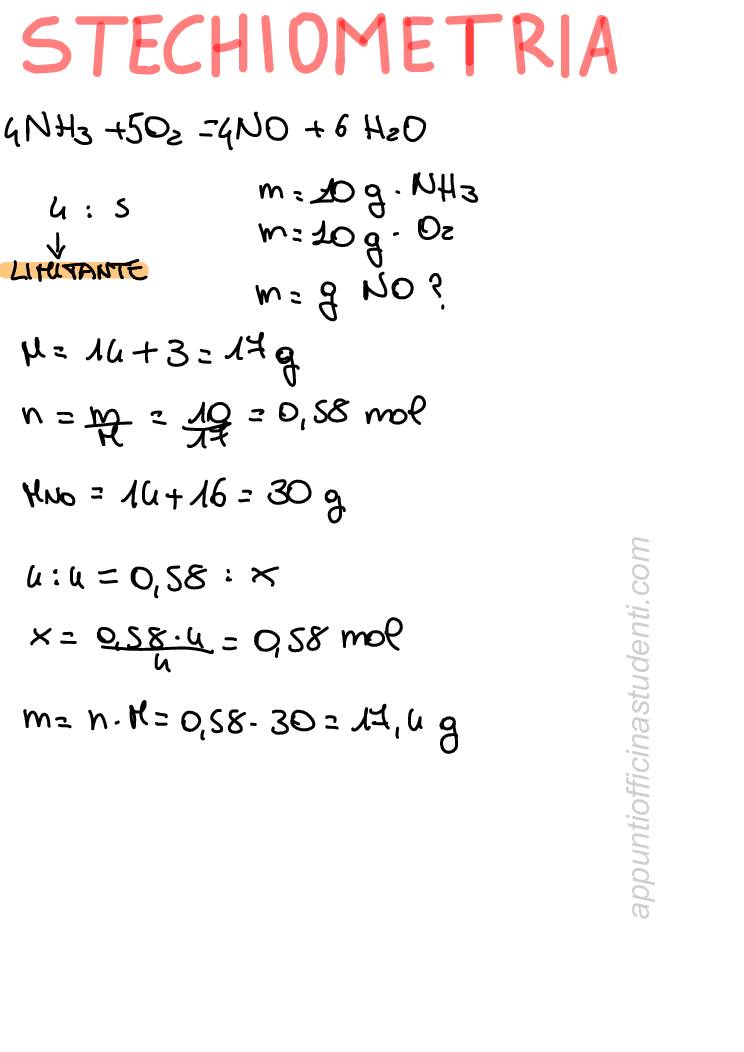 STECHIOMETRIA
4NH3 +5O2 =4NO + 6 H2O
4 : 5
LIMITANTE
m = 10 g · NH3
m = 10 g · O2
m = g NO ?
M = 14 + 3 = 17 g
n = m/M = 10/17 = 0,58 mol
MNO = 14 + 16 = 30 g
4 : 4 = 0,58 : x
x = 0,58 · 4/4 = 0,58 mol
m = n · M = 0,58 · 30 = 17,4 g
appuntiofficinastudenti.com